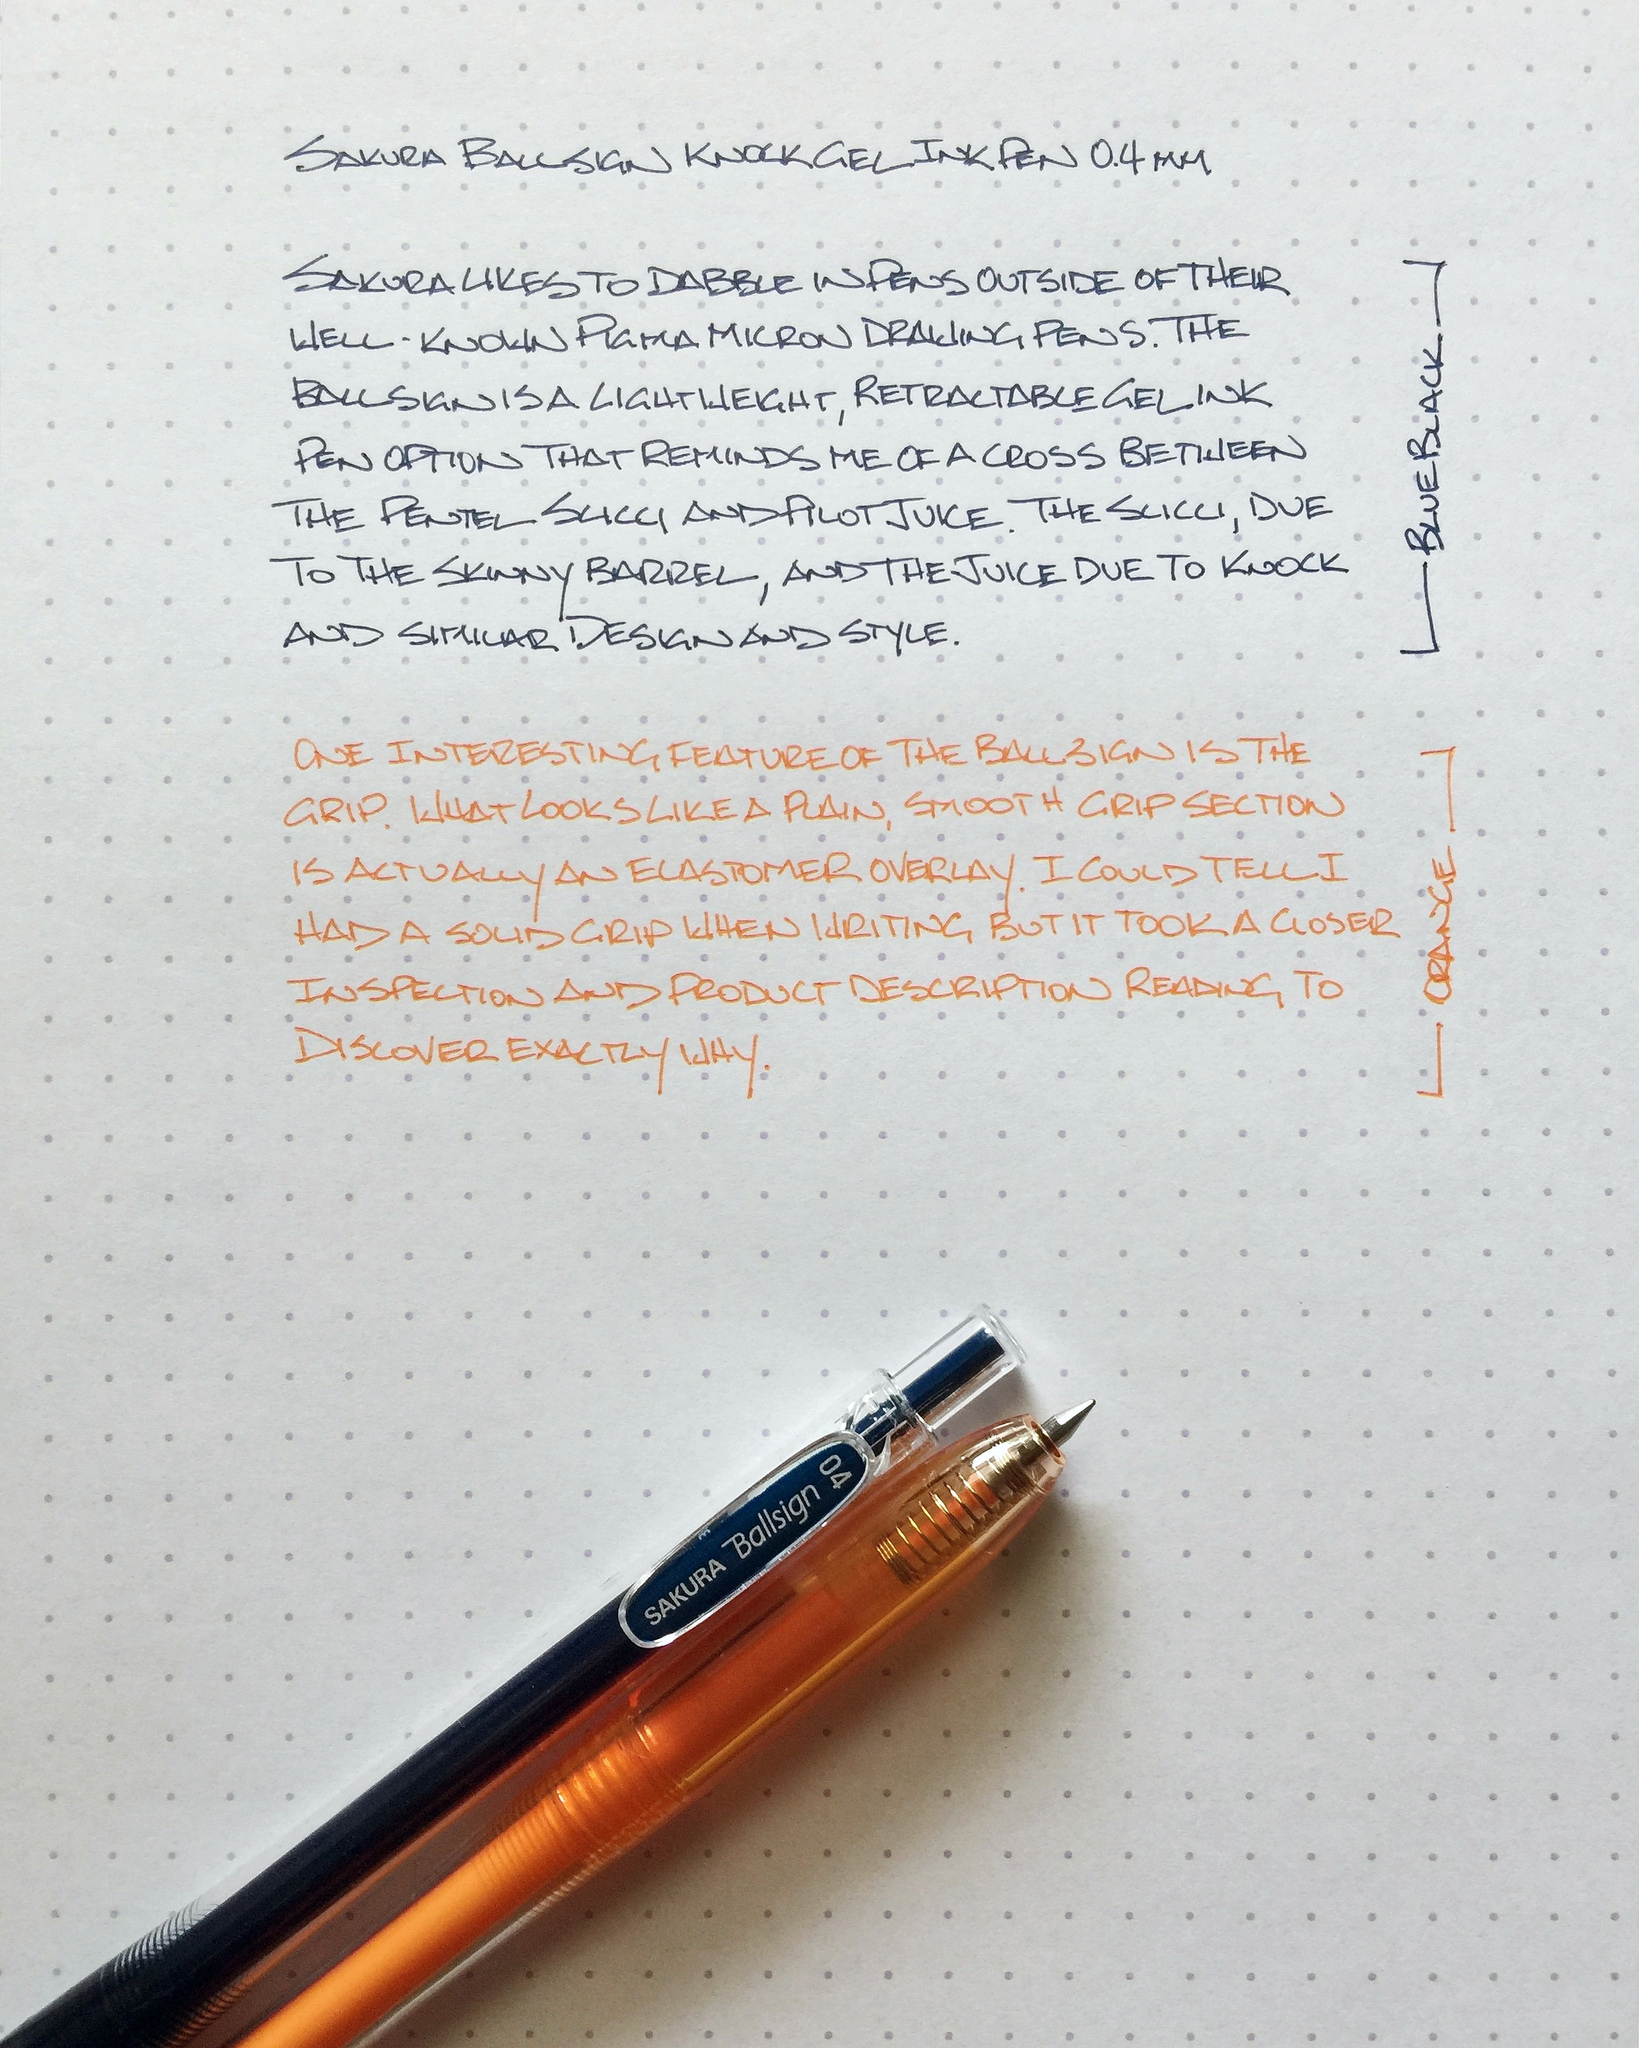 SAKURA BALLSIGN KNOCK GEL INK PEN 0.4 MM
SAKURA LIKES TO DABBLE IN PENS OUTSIDE OF THEIR
WELL-KNOWN PIGMA MICRON DRAWING PENS. THE
BALLSIGN IS A LIGHTWEIGHT, RETRACTABLE GEL INK
PEN OPTION THAT REMINDS ME OF A CROSS BETWEEN
THE PENTEL SLICCI AND PILOT JUICE. THE SLICCI, DUE
TO THE SKINNY BARREL, AND THE JUICE DUE TO KNOCK
AND SIMILAR DESIGN AND STYLE.
BLUE BLACK
ONE INTERESTING FEATURE OF THE BALLSIGN IS THE
GRIP. WHAT LOOKS LIKE A PLAIN, SMOOTH GRIP SECTION
IS ACTUALLY AN ELASTOMER OVERLAY. I COULD TELL I
HAD A SOLID GRIP WHEN WRITING, BUT IT TOOK A CLOSER
INSPECTION AND PRODUCT DESCRIPTION READING TO
DISCOVER EXACTLY WHY.
ORANGE
SAKURA Ballsign 04